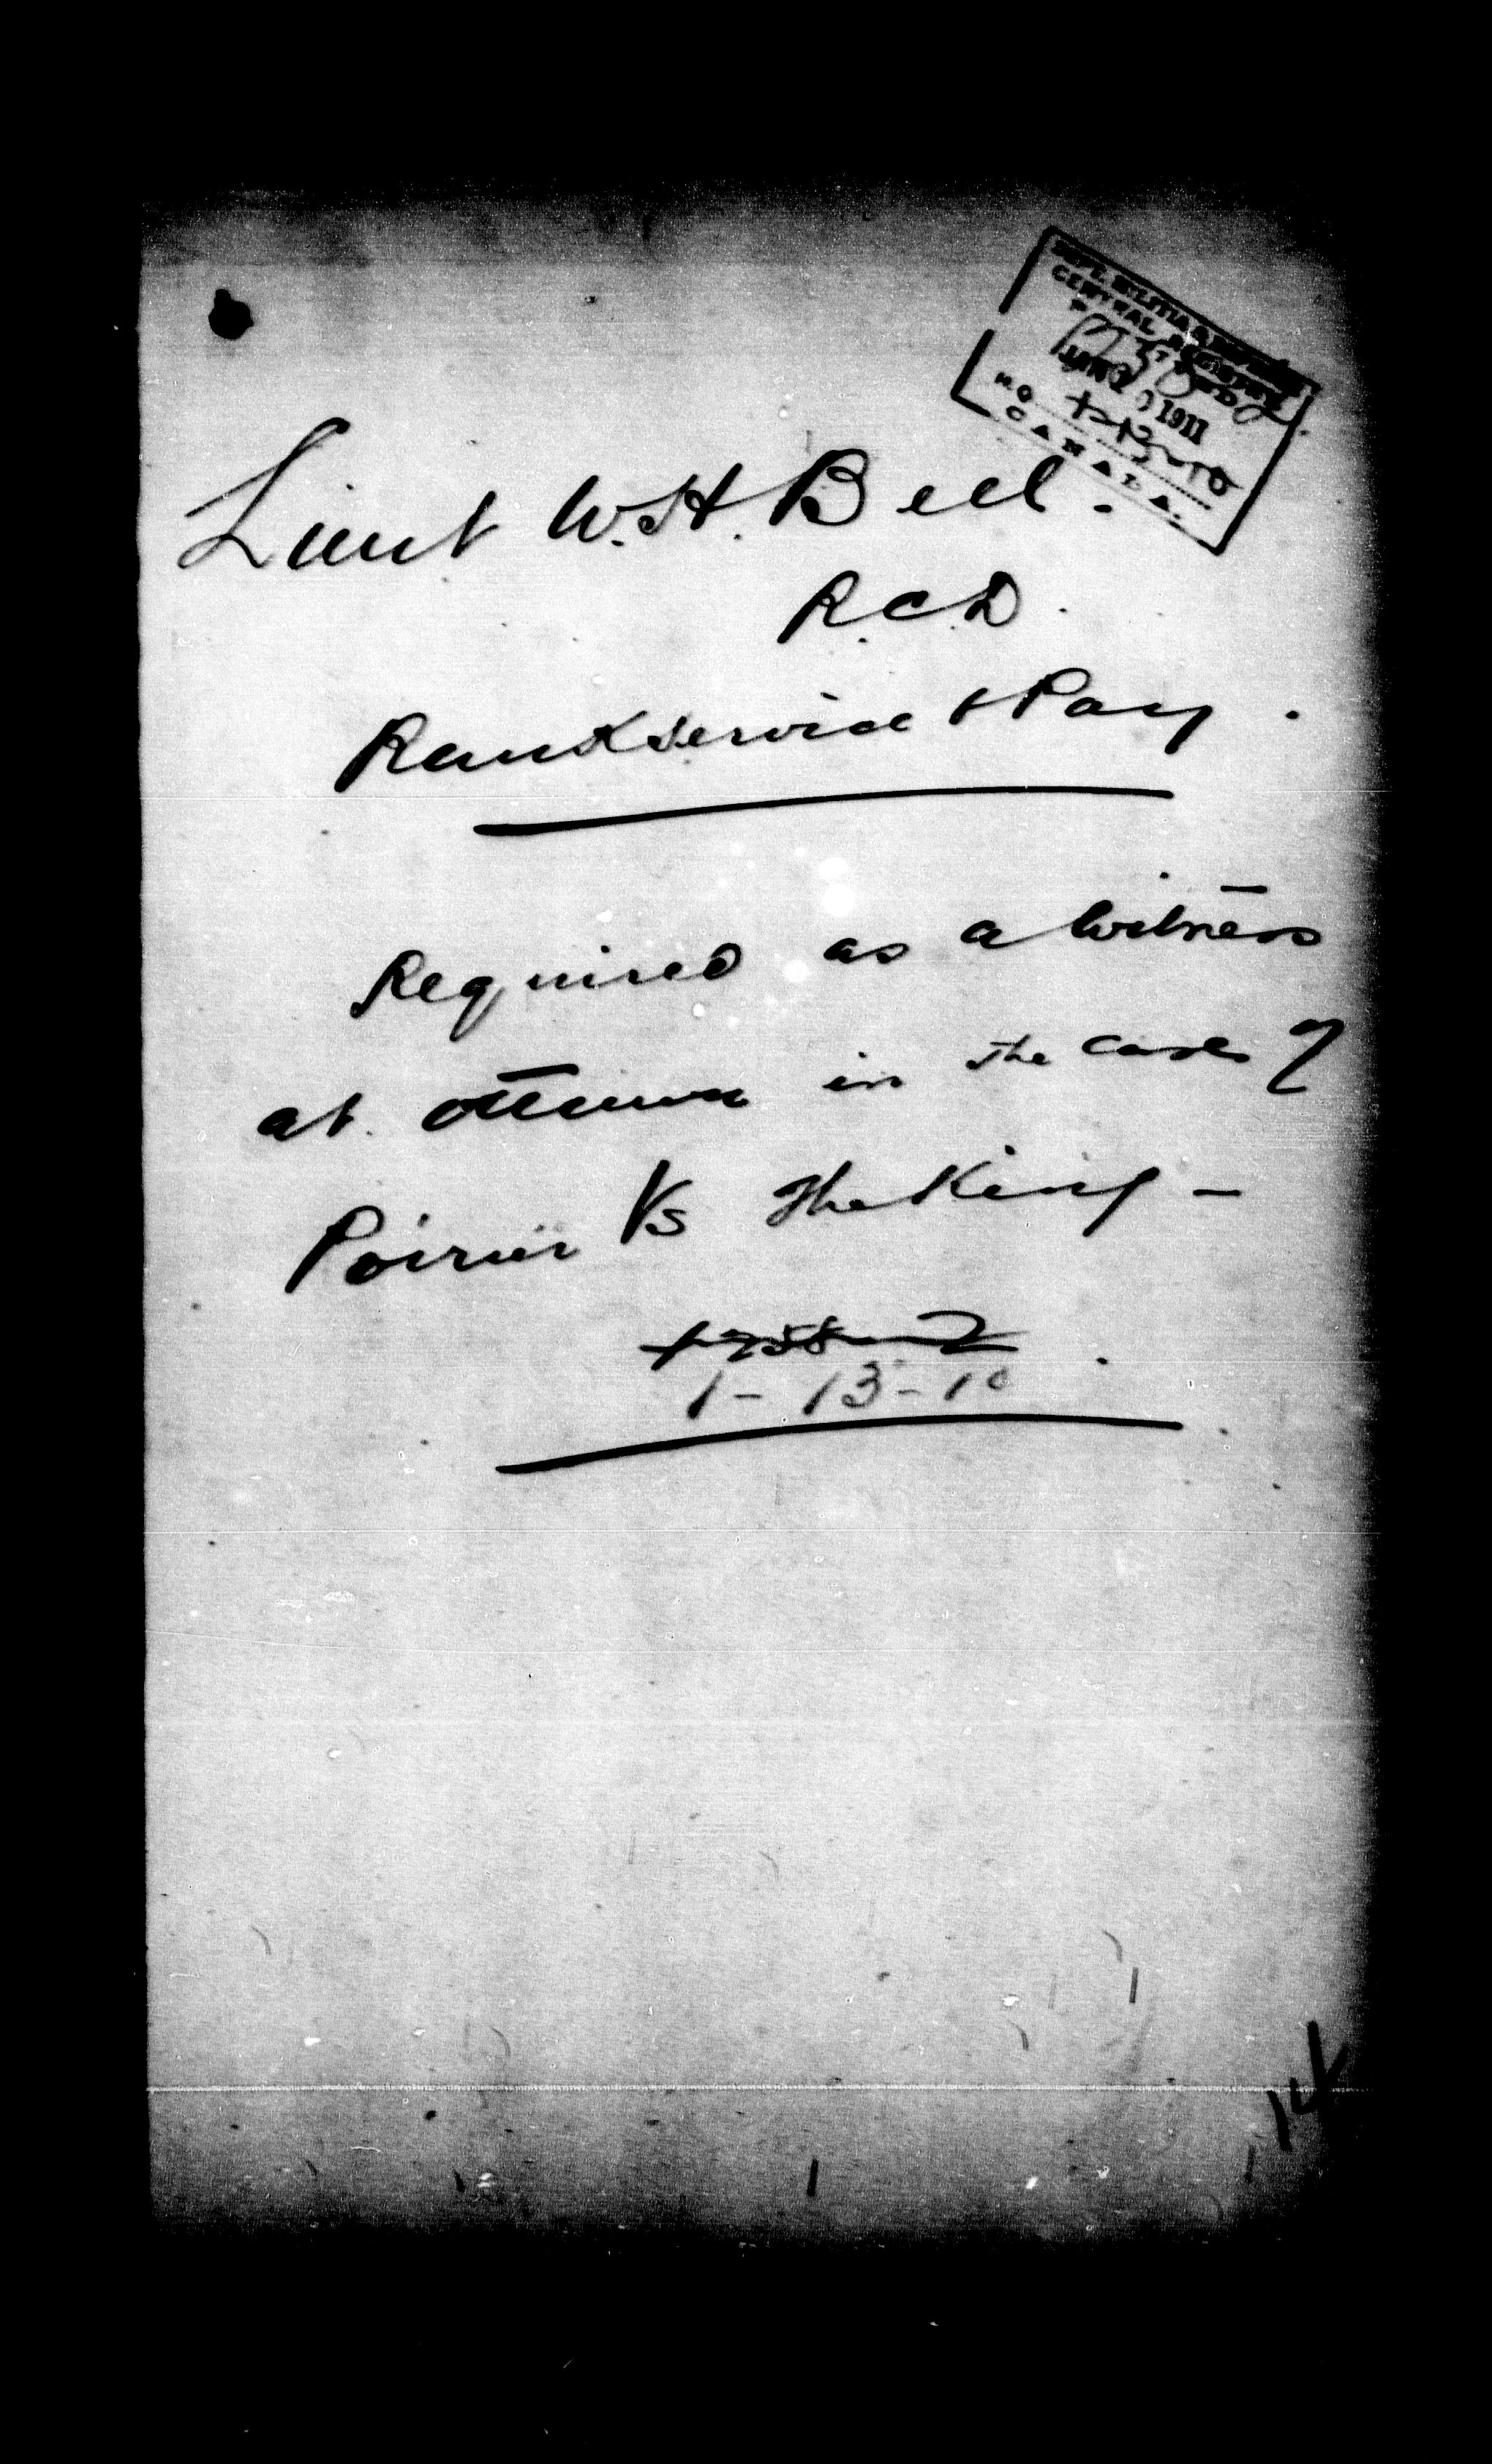 DEPT. MILITIA & DEFENCE
CENTRAL REGISTRY
JAN 20 1911
H.Q.
CANADA.
Lieut W.H. Bell.
R.C.D.
Rank Service & Pay.
Required as a witness
at Ottawa in the case of
Poirier Vs The King -
1-13-10
14